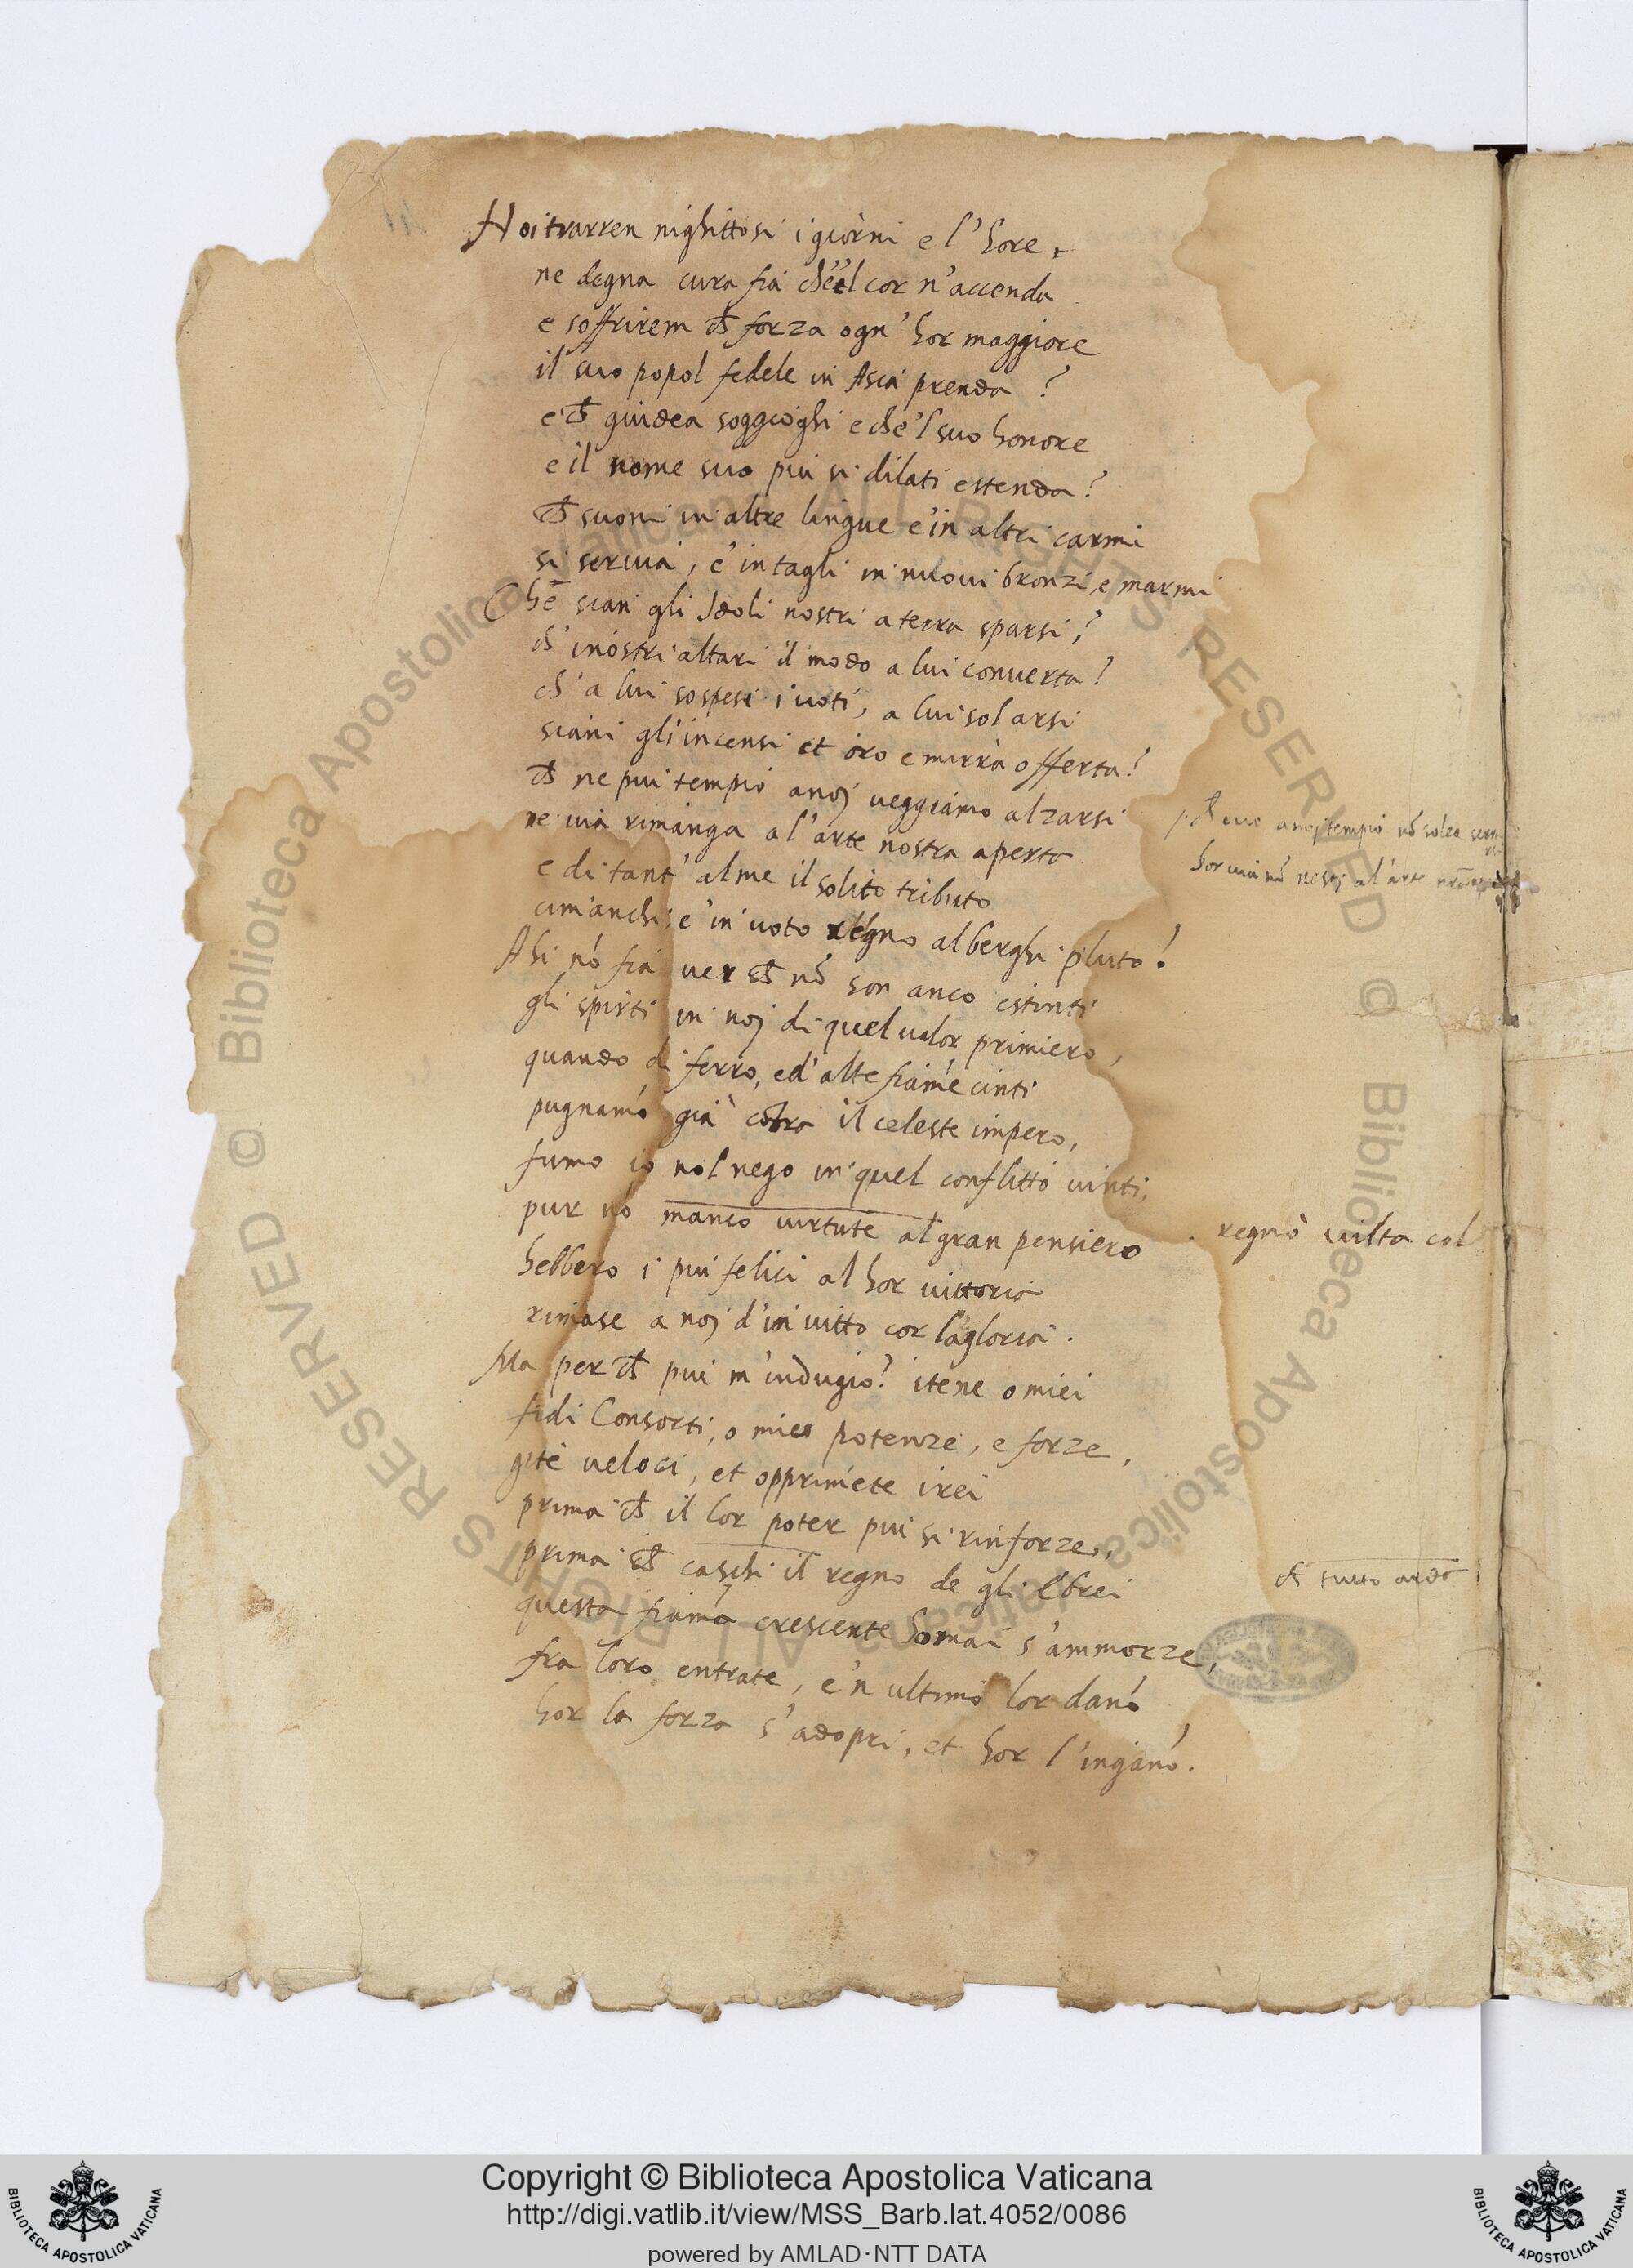 Noi trarren nighittosi i giorni e l'hore,
ne degna cura fia che'l cor n'accenda
e soffrirem ch̃ forza ogn'hor maggiore
il suo popol fedele in Asia prenda?
e ch̃ giudea soggioghi e che'l suo honore
e il nome suo piu si dilati estenda?
ch̃ suoni in altre lingue e'in altri carmi
si scriua, e' intagli in nuoui bronzi, e marmi
Chē sian gli Idoli nostri a terra sparsi?
ch' i nostri altari il mōdo a lui conuerta?
ch' a lui sospesi i uoti, a lui sol arsi
siano gl'incensi et oro e mirra offerta?
ch̃ ne piu tempio a noj ueggiamo alzarsi
ne uia rimanga a l'arte nostra aperta
e di tant' alme il solito tributo
ci manchi, e' in uoto regno alberghi pluto?
Ahi nō fia uer ch̃ nō son anco estinti
gli spirti in noj di quel ualor primiero,
quando di ferro, e d'alte fiam̄e cinti
pugnam̄o gia cōtra il celeste impero,
fumo io nol nego in quel conflitto uinti,
pur nō manco uirtute al gran pensiero
hebbero i piu felici al hor uittoria
rimase a noj d'inuitto cor la gloria.
Ma per ch̃ piu m'indugio? itene o miei
fidi Consorti, o mie potenze, e forze,
gite ueloci, et opprimete i rei
prima ch̃ il lor poter piu si rinforze,
prima ch̃ caschi il regno de gli Ebrei
questa fiam̄a crescente homai s'ammorze,
fra loro entrate, e'n ultimo lor dan̄o
hor la forza s'adopri, et hor l'ingan̄o.
a noj tempio nō solea
hor uia nō resti a l'arte
regno uilta col
ch̃ tutto arda
Copyright © Biblioteca Apostolica Vaticana
http://digi.vatlib.it/view/MSS_Barb.lat.4052/0086
powered by AMLAD·NTT DATA
BIBLIOTECA APOSTOLICA VATICANA
BIBLIOTECA APOSTOLICA VATICANA
Biblioteca Apostolica Vaticana ALL RIGHTS RESERVED © Biblioteca Apostolica Vaticana ALL RIGHTS RESERVED ©